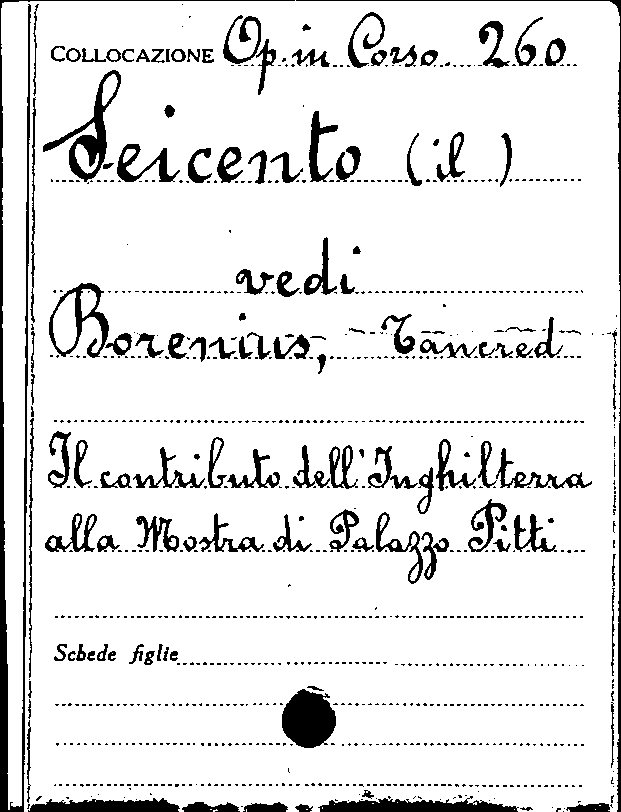 COLLOCAZIONE Op. in Corso. 260
Seicento (il)
vedi
Borenius, Tancred
Il contributo dell'Inghilterra
alla Mostra di Palazzo Pitti
Schede figlie